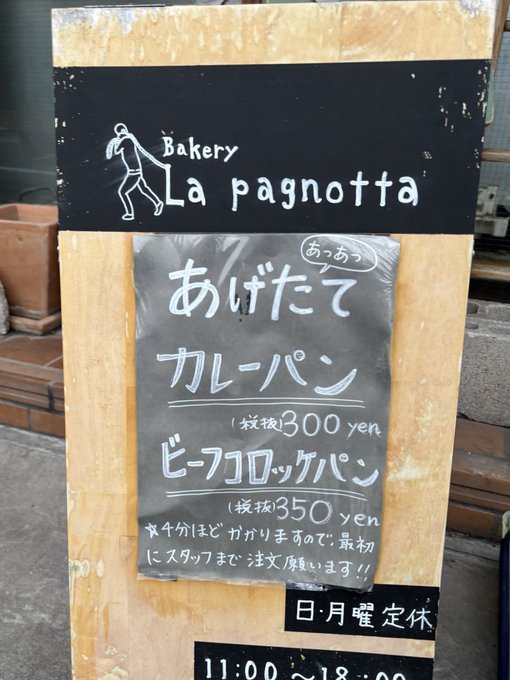 Bakery
La pagnotta
あつあつ
あげたて
カレーパン
(税抜)300yen
ビーフコロッケパン
(税抜)350yen
☆4分ほどかかりますので、最初
にスタッフまで注文願います!!
日・月曜定休
11:00〜18:00